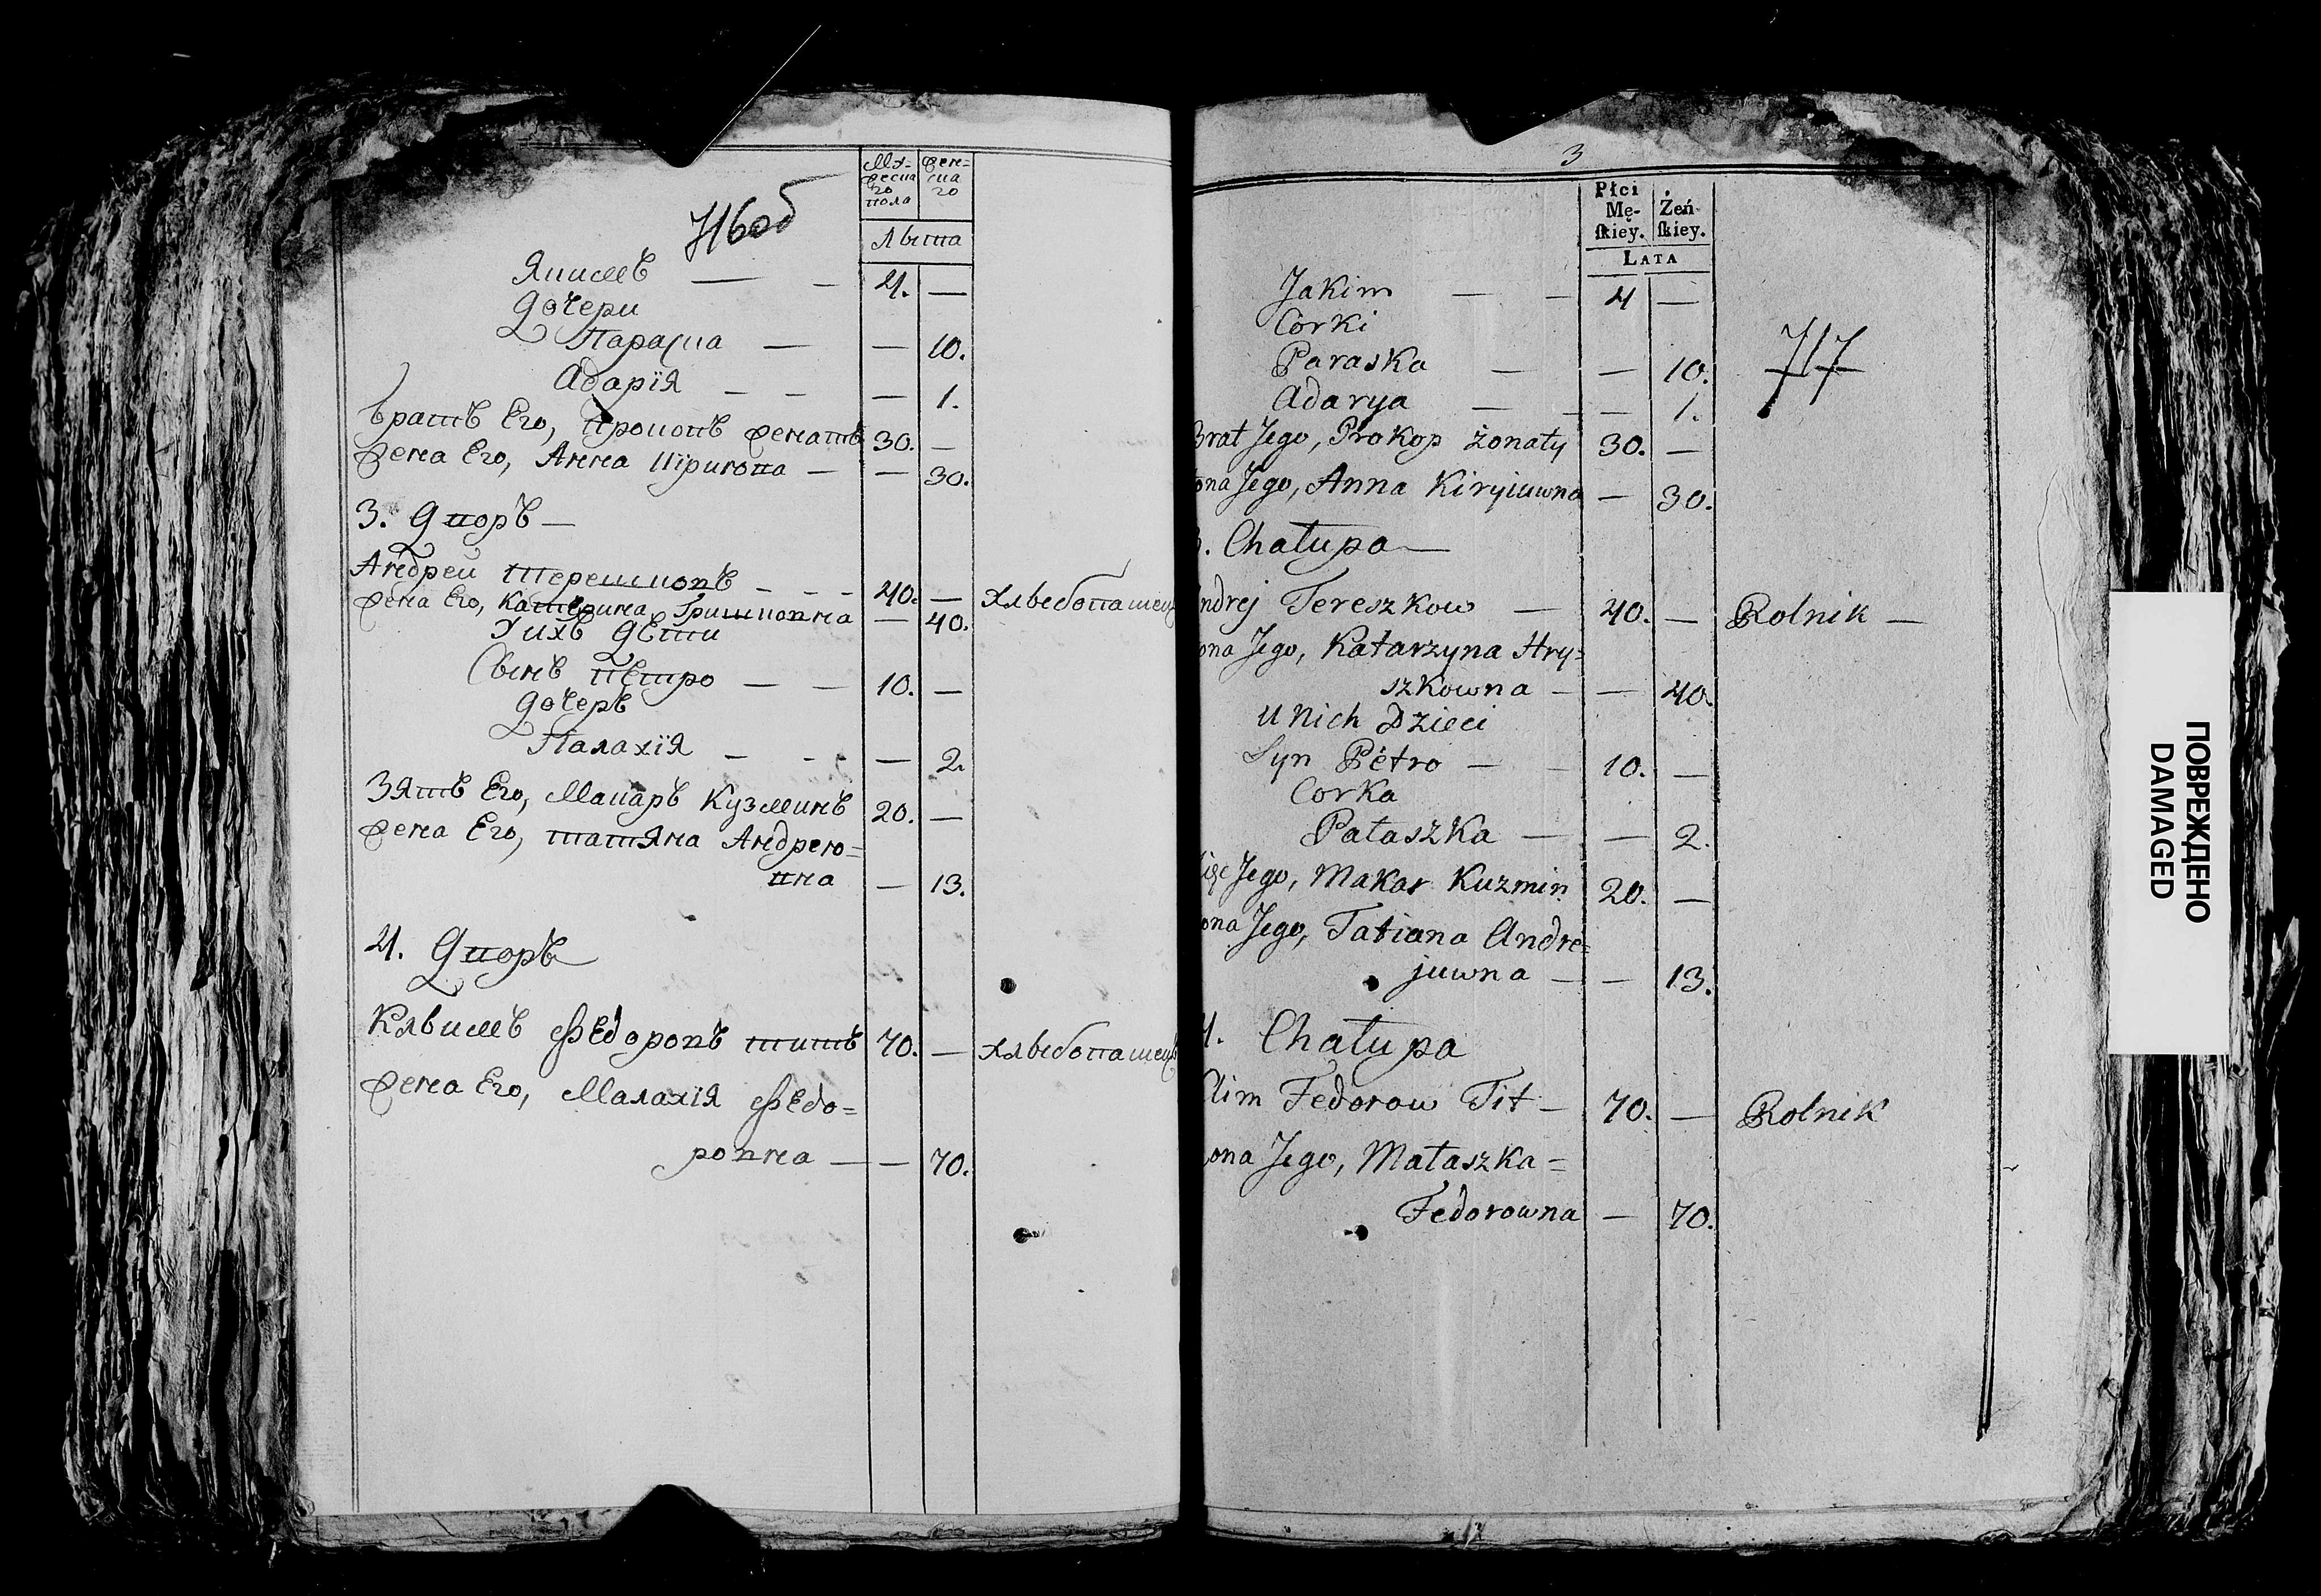 716об
Му-
жеска
го
пола
Жен-
ска
го
Лѣта
Якимъ — — 4. —
Дочери
Параска — — 10.
Адарія — — — 1.
Братъ Его, Прокопъ женатъ 30. —
Жена Его, Анна — — 30.
3. Дворъ —
Андрей Терешковъ - - - 40. — хлѣбопашец
Жена Его, Катерина Гришковна — 40.
У ихъ Дѣти
Сынъ Пётро — — 10. —
Дочеръ
Палахія - - - — 2.
Зятъ Его, Макаръ Кузминъ 20. —
Жена Его, татяна Андрею=
вна — 13.
4. Дворъ
Клѣимъ Фёдоровъ титъ 70. — хлѣбопашецъ
Жена Его, Малахія Фёдо=
ровна — — 70.
3
Płci
Mę-
ſkiey.
Żeń
ſkiey.
LATA
Jakim — — 4 —
Corki
717
Paraska — — 10.
Adarya — — — 1.
Brat Jego, Prokop żonaty 30. —
ona Jego, Anna Kiryiuwna — 30.
3. Chałupa —
ndrej Tereszkow — 40. — Rolnik —
ona Jego, Katarzyna Hry=
szkowna — — 40.
u Nich Dzieci
Syn Pétro — — 10. —
Corka
Pałaszka — — 2.
ięc Jego, Makar Kuzmin 20. —
ona Jego, Tatiana Andre=
juwna — — 13.
4. Chałupa
Clim Fedorow Tit — 70. — Rolnik
ona Jego, Małaszka =
Fedorowna — 70.
ПОВРЕЖДЕНО
DAMAGED